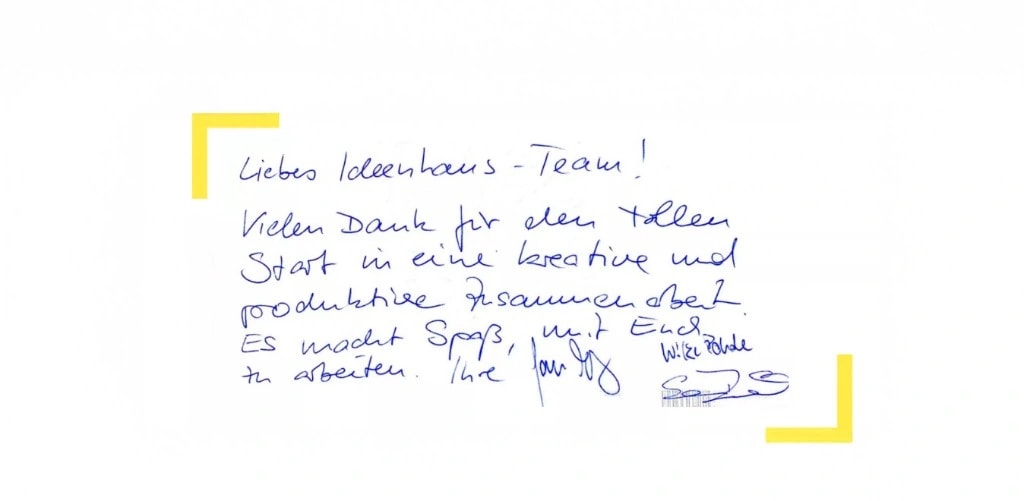 Liebes Ideenhaus-Team!
Vielen Dank für den tollen
Start in eine kreative und
produktive Zusammenarbeit.
Es macht Spaß, mit Euch
zu arbeiten. Ihre